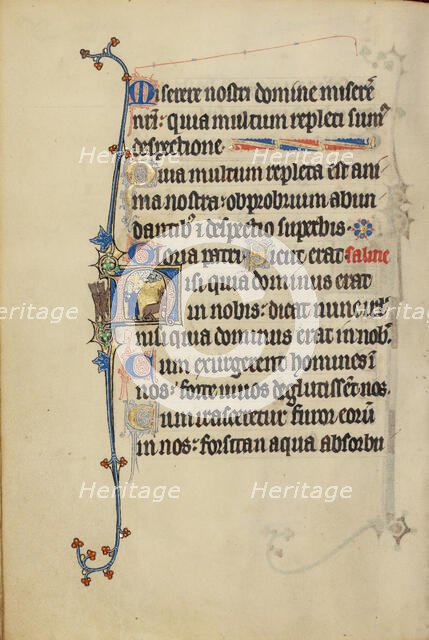 Miserere nostri domine miserē
nrī: quia multum repleti sumꝰ
despectione
Quia multum repleta est ani
ma nostra: obprobrium abun
dantibꝰ ⁊ despectio superbis
Gloria patri Sicut erat
Nisi quia dominus erat
in nobis: dicat nunc isrl̄
nisi quia dominus erat in nob̄.
Cum exurgerent homines ī
nos: forte vivos deglutissēt nos.
Cum irasceretur furor eorū
in nos: forsitan aqua absorbu
Heritage
Heritage
Heritage
Heritage
Heritage
Heritage
Heritage